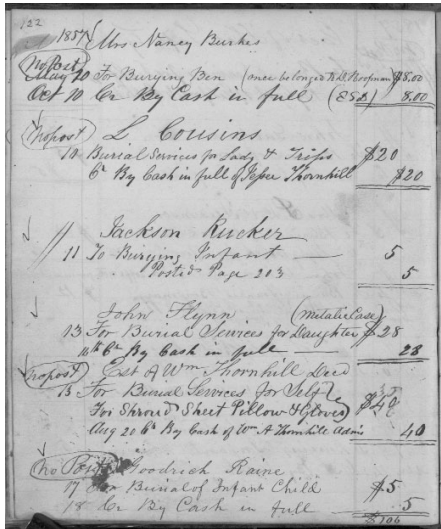 122
1857 Mrs Nancy Burkes
No Post
May 20 For Burying Ben (once belonged $8.00
Oct 10 Cr By Cash in full 8.00
No post L. Cousins
10 Burial Services for Lady & Trips $20
Cr By Cash in full of Jesse Thornhill $20
Jackson Rucker
11 To Burying Infant 5
Posted Page 203 5
John Flynn (Metalic Case)
13 For Burial Services for Daughter $28
16th Cr By Cash in full 28
No post Est A Wm Thornhill Decd
15 For Burial Services for Self
For Shroud Sheet Pillow & Gloves $40
Aug 20 Cr By Cash of Wm A Thornhill Adms 40
No Post Goodrich Raine
17 For Burial of Infant Child $5
18 Cr By Cash in full 5
$106